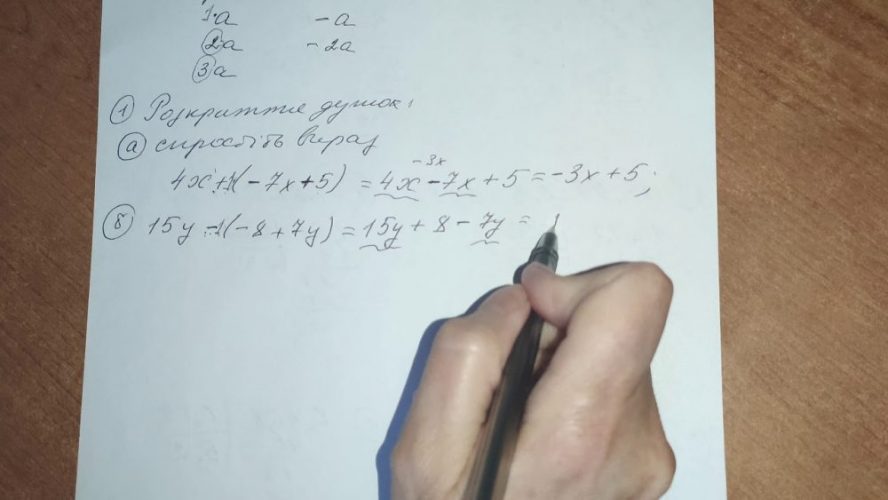 1·a -a
2·a -2a
3a
1 Розкриття дужок:
а спростіть вираз
-3x
4x+1(-7x+5) = 4x-7x+5=-3x+5;
б 15y-1(-8+7y)=15y+8-7y=